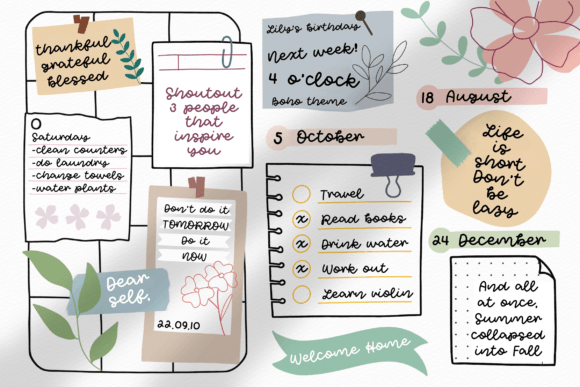 thankful
grateful
blessed
Shoutout
3 people
that
inspire
you
Saturday
-clean counters
-do laundry
-change towels
-water plants
Don't do it
TOMORROW
Do it
NOW
22.09.10
Dear
self,
Lily's birthday
next week!
4 o'clock
Boho theme
5 October
Travel
x Read books
x Drink water
x Work out
Learn violin
Welcome Home
18 August
Life
is
short
Don't
be
lazy
24 December
And all
at once,
Summer
collapsed
into Fall